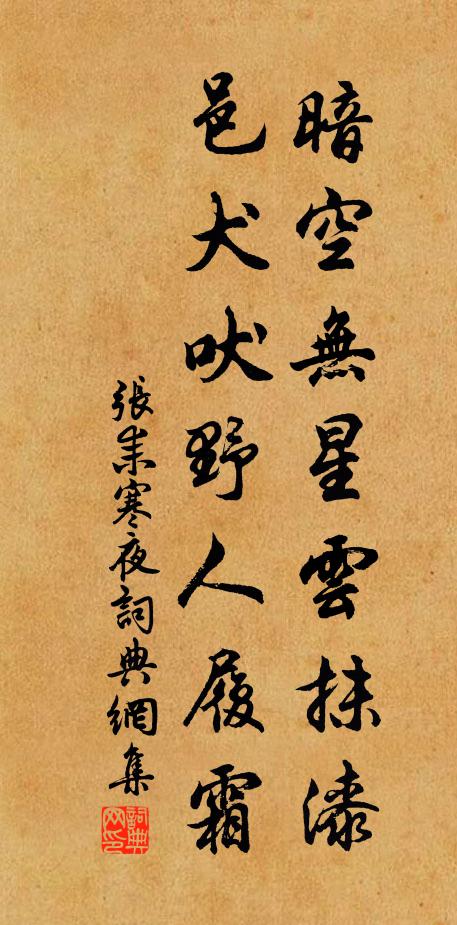 暗空無星雲抹漆
邑犬吠野人履霜
張耒寒夜詞典網集
詞典网印